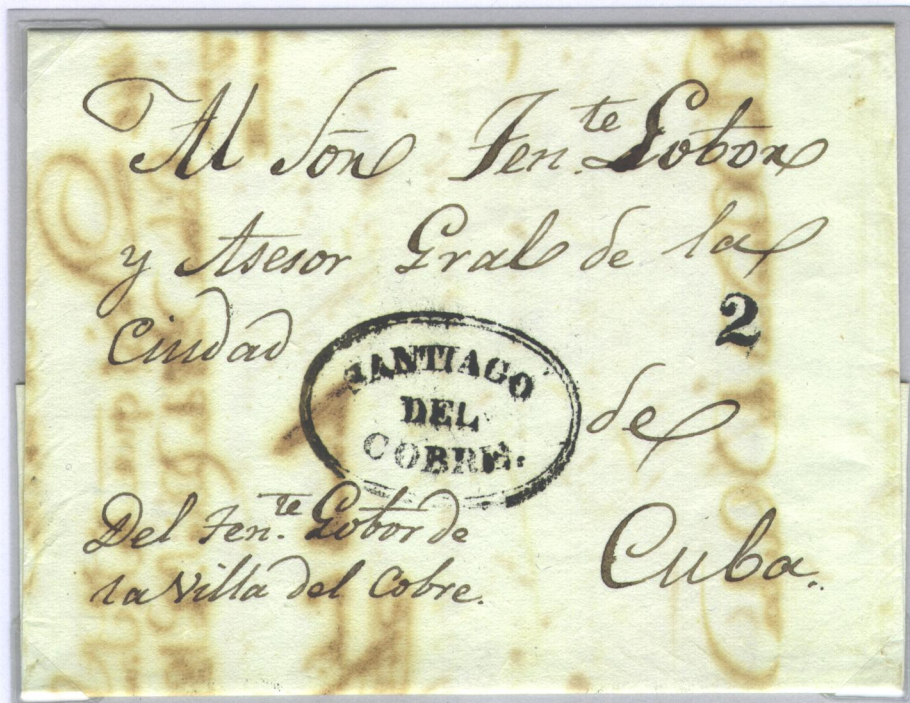 Al Sōr Ten.te Gobor
y Asesor Gral de la
2
Ciudad
SANTIAGO
DEL
COBRE.
de
Del Ten.te Gobor de
la Villa del Cobre.
Cuba.